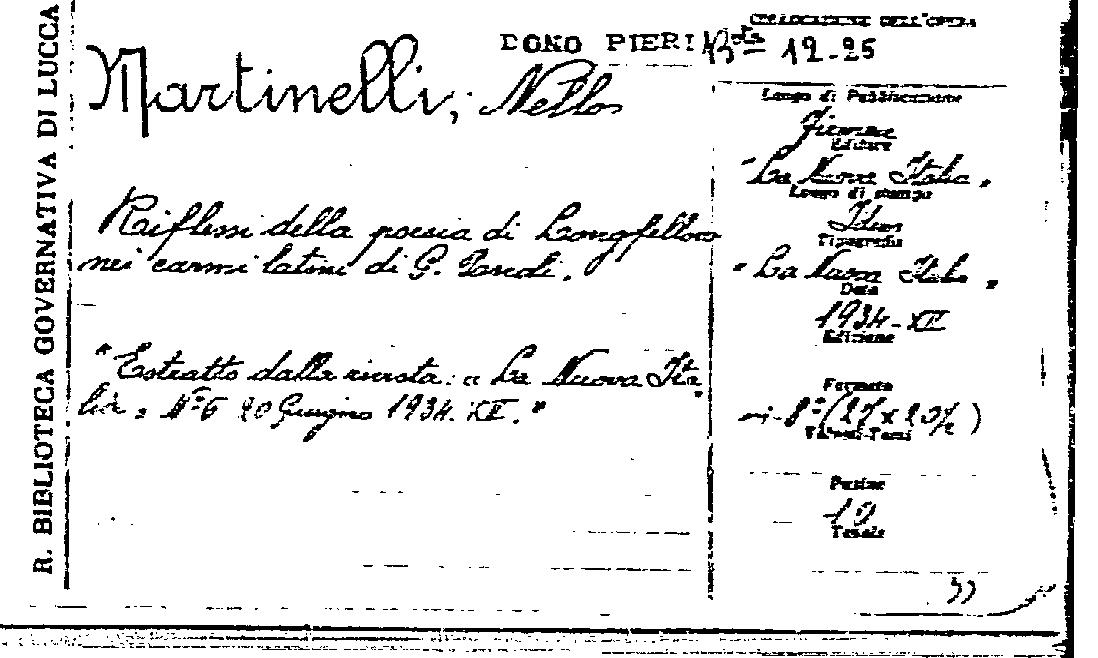 R. BIBLIOTECA GOVERNATIVA DI LUCCA
DONO PIERI
COLLOCAZIONE DELL'OPERA
Bta 12-25
Martinelli, Nello
Riflessi della poesia di Longfellow
nei carmi latini di G. Pascoli.
"Estratto dalla rivista: "La Nuova Ita
lia" N° 6 20 Giugno 1934. XII."
Luogo di Pubblicazione
Firenze
Editore
"La Nuova Italia"
Luogo di stampa
Idem
Tipografia
"La Nuova Italia"
Data
1934-XII
Edizione
Formato
in-8° (27 x 20½)
Volumi-Tomi
Pagine
10
Tavole